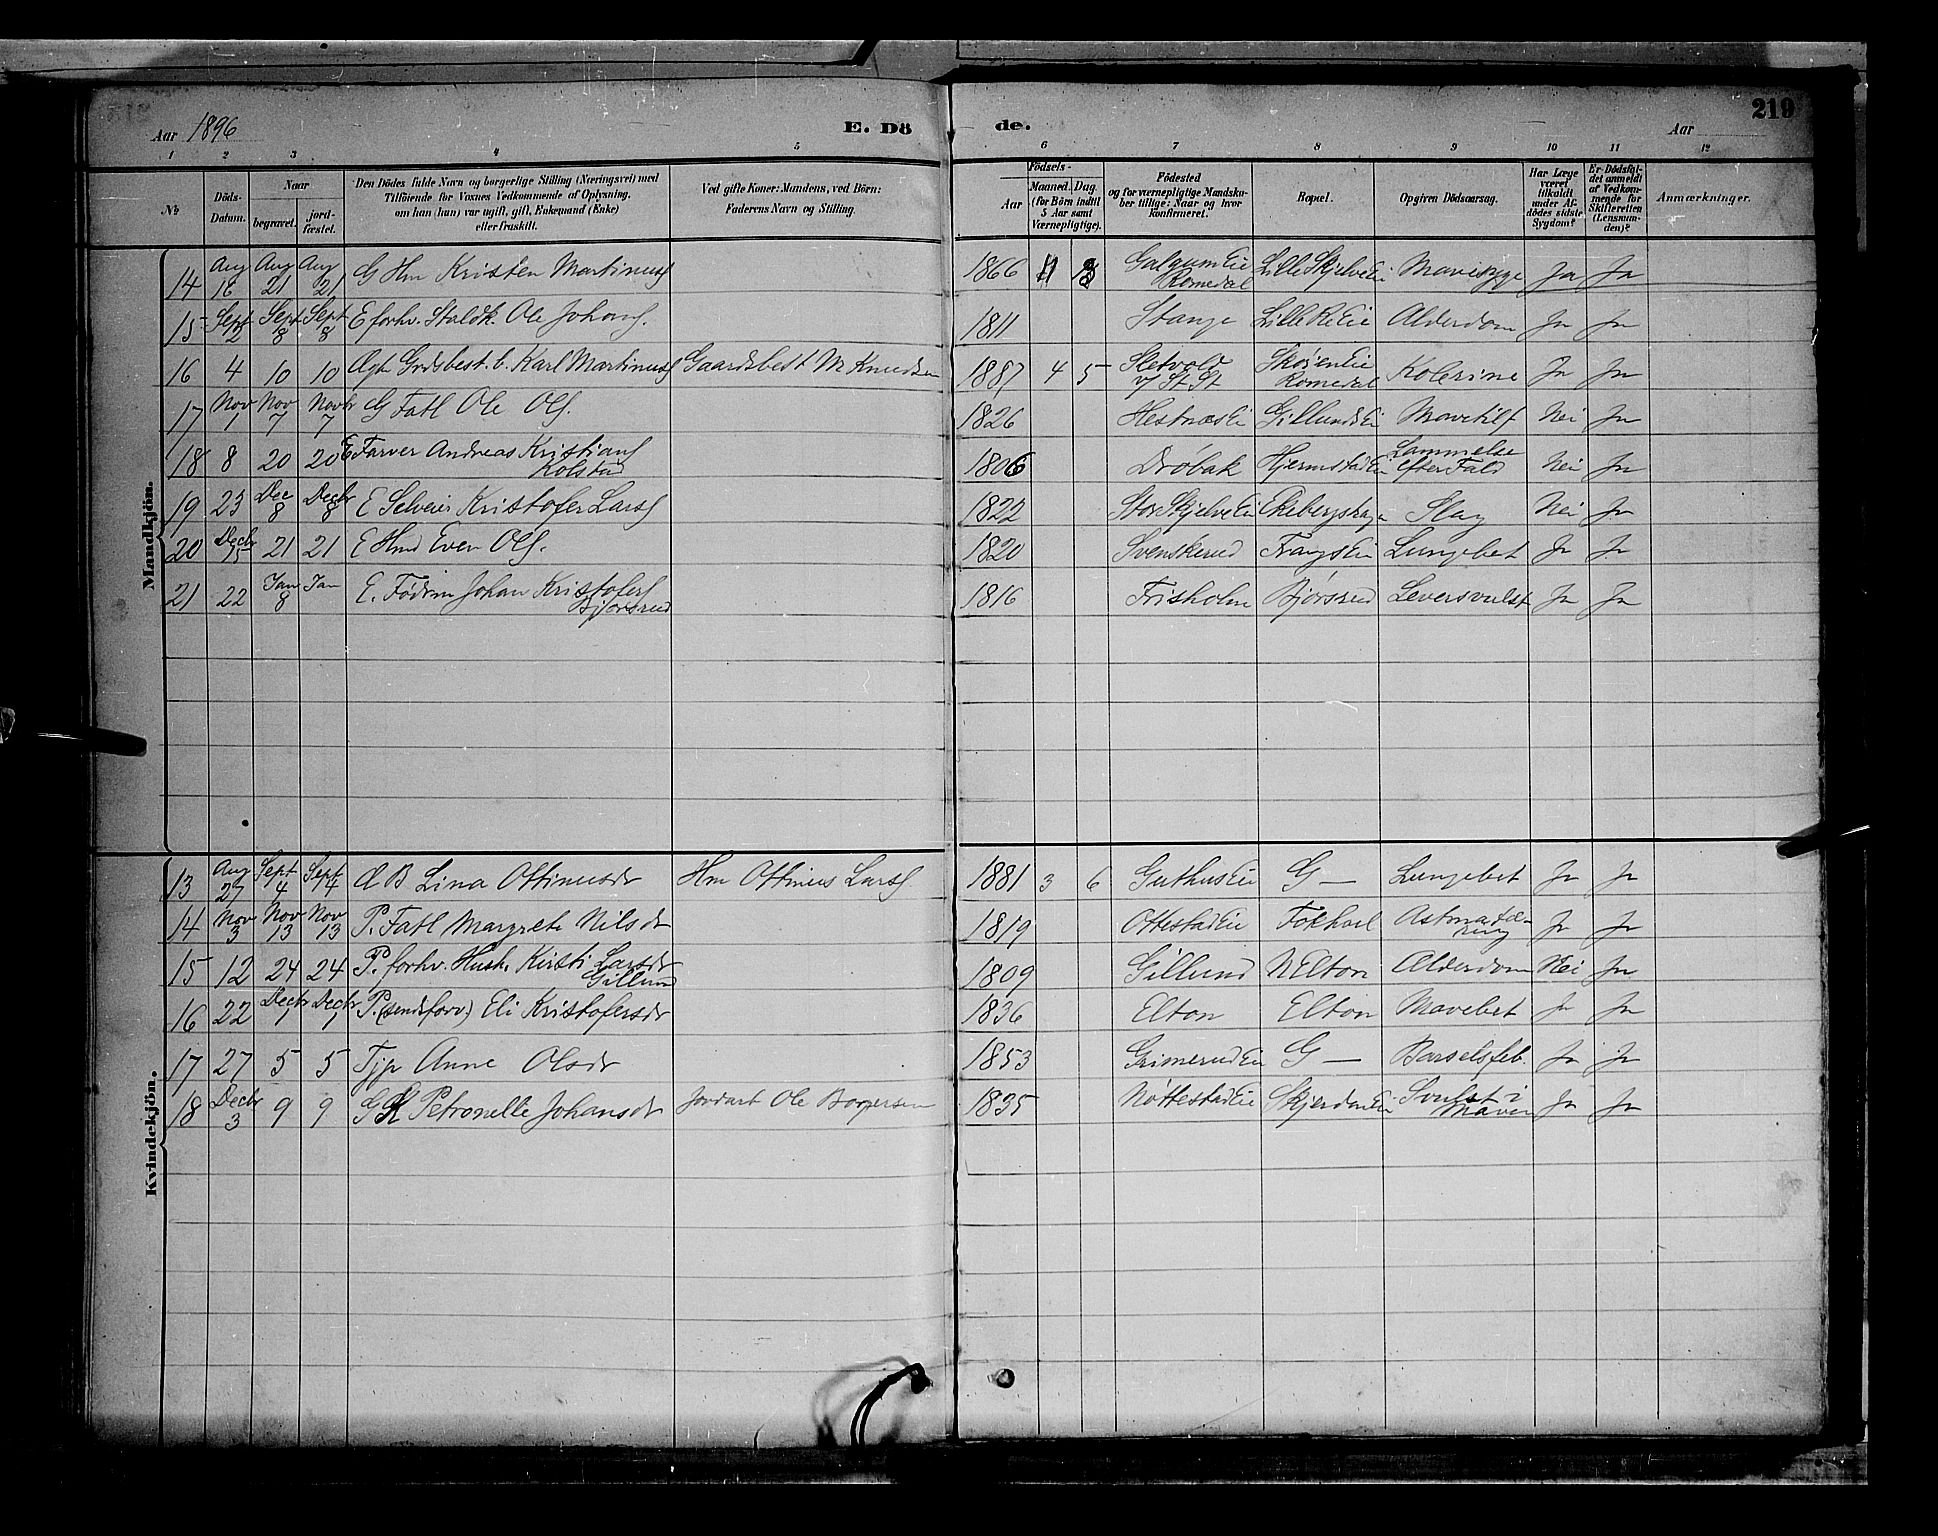 Aar 1896 E. Dö de. Aar 219
1 2 3 4 5 6 7 8 9 10 11 12
№ Döds-Datum. Naar begravet. jord-fæstet. Den Dödes fulde Navn og borgerlige Stilling (Næringsvei) med Tilföiende for Voxnes Vedkommende af Oplysning, om han (hun) var ugift, gift, Enkemand (Enke) eller fraskilt. Ved gifte Koner: Mandens, ved Börn: Faderens Navn og Stilling. Födsels- Aar Maaned. Dag. (for Börn indtil 5 Aar samt Værnepligtige). Födested og for værnepligtige Mandskaber tillige: Naar og hvor konfirmeret. Bopæl. Opgiven Dödsaarsag. Har Læge været tilkaldt under Afdödes sidste Sygdom? Er Dödsfaldet anmeldt af Vedkommende for Skifteretten (Lensmanden)? Anmærkninger.
Mandkjön.
14 Aug 16 Aug 21 Aug 21 G Hm Kristen Martinus 1866 Galgum Eie Romedal Lille Skjelve Ei Mavesyge Ja Ja
15 Sept 2 Sept 8 Sept 8 E forhv. Staldk. Ole Johans. 1811 Stange Lille Re Eie Alderdom Ja Ja
16 4 10 10 Ægt Grdsbest. b. Karl Martinus Gaardsbest M Knudsen 1887 4 5 Sletvold v/ St. St Skojen Eie Romedal Kolerine Ja Ja
17 Nov 1 Nov 7 Novbr 7 G Fatl Ole Ols. 1826 Hestnæs Ei Gillunds Ei Mavetilf Nei Ja
18 8 20 20 E Farver Andreas Kristians Kolstad 1806 Dröbak Hjermstad Ei Lammelse efter Fald Nei Ja
19 23 Dec 8 Decbr 8 E Selveier Kristofer Lars 1822 Stor Skjelve Ei Ekeberghage Slag Nei Ja
20 Decbr 15 21 21 E Hmd Even Ols. 1820 Svenskerud Frangs Eie Lungebet Ja Ja
21 22 Jan 8 Jan E. Fødrm Johan Kristofers Bjørsrud 1816 Frisholm Bjørsrud Leversvulst Ja Ja
Kvindekjön.
13 Aug 27 Sept 4 Sept 4 Æ B Lina Ottinusdr Hm Ottinus Lars. 1881 3 6 Guthus Eie G — Lungebet Ja Ja
14 Nov 3 Nov 13 Nov 13 P. Fatl Margrete Nilsdr 1819 Ottestad Eie Fokhol Astma Tæring Ja Ja
15 12 24 24 P. forhv. Hush. Kirsti Larsdr Gillund 1809 Gillund N Elton Alderdom Nei Ja
16 22 Decbr 1 Decbr 1 P. (sindsforv.) Eli Kristofersdr 1836 Elton Elton Mavebet Ja Ja
17 27 5 5 Tjp Anne Olsdr 1853 Grimerud Eie G — Barselsfeb. Ja Ja
18 Decbr 3 9 9 G K Petronelle Johansdr Jordarb Ole Borgersen 1835 Nøttestad Eie Skjerden Ei Svulst i Maven Ja Ja